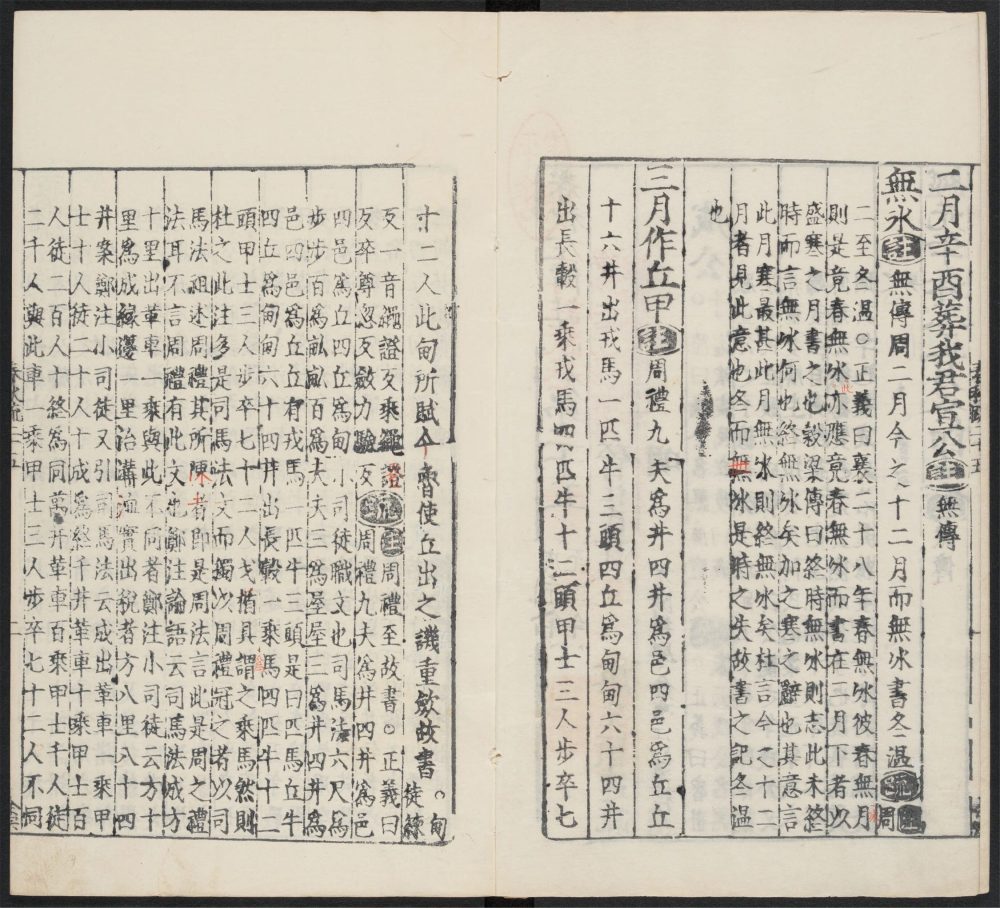 二月辛酉葬我君宣公註無傳
無冰註無傳周二月今之十二月而無冰書冬溫疏註周
二至冬溫○正義曰襄二十八年春無冰彼春無月
則是竟春無冰此亦應竟春無冰而書在二月下者以
盛寒之月書之也穀梁傳曰終時無冰則志此未終
時而言無冰何也終無冰矣加之寒之辭也其意言
此月寒最甚此月無冰則終無冰矣杜言今之十二
月者見此意也冬而無冰是時之失故書之記冬溫
也
三月作丘甲註周禮九夫爲井四井爲邑四邑爲丘丘
十六井出戎馬一匹牛三頭四丘爲甸甸六十四井
出長轂一乘戎馬四匹牛十二頭甲士三人步卒七
十二人此甸所賦今魯使丘出之譏重斂故書○甸徒練
反一音繩證反乘繩證
反卒尊忽反斂力驗反疏註周禮至故書○正義曰
周禮九夫爲井四井爲邑
四邑爲丘四丘爲甸小司徒職文也司馬法六尺爲
步步百爲畝畝百爲夫夫三爲屋屋三爲井四井爲
邑四邑爲丘丘有戎馬一匹牛三頭是曰匹馬丘牛
四丘爲甸甸六十四井出長轂一乘馬四匹牛十二
頭甲士三人步卒七十二人戈楯具謂之乘馬然則
杜之此注多是司馬法文而獨以周禮冠之者以司
馬法祖述周禮其所陳者即是周法言此是周之禮
法耳不言周禮有此文也鄭注論語云司馬法成方
十里出革車一乘與此不同者鄭注小司徒云方十
里爲成緣邊一里治溝洫實出稅者方八里八十四
井案鄭注小司徒又引司馬法云成出革車一乘甲
士十人徒二十人十成爲終千井革車十乘甲士百
人徒二百人十終爲同萬井革車百乘甲士千人徒
二千人與此車一乘甲士三人步卒七十二人不同